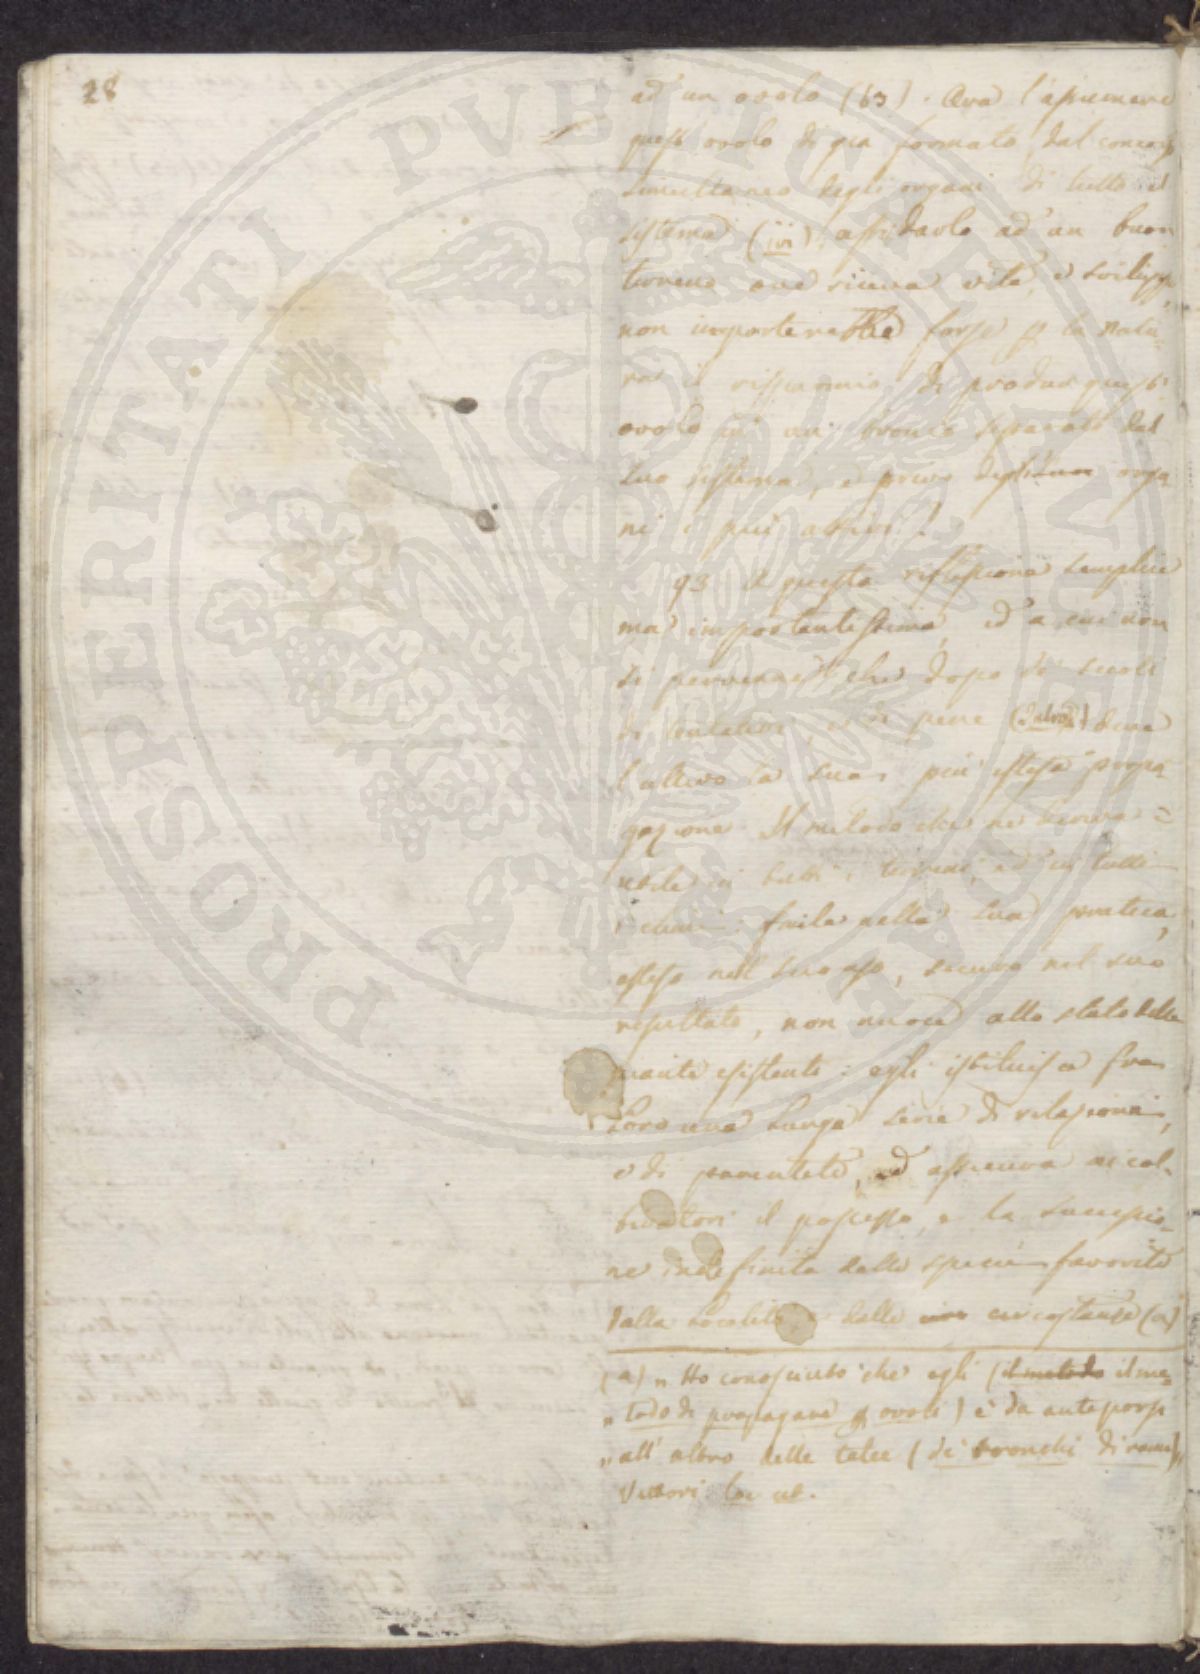 28
ad un ovolo (63). Ora l'assicurare
questo ovolo di già formato dal concorso
simultaneo degli organi di tutto il
sistema (ivi), affidarlo ad un buon
terreno ove riceva vita, e sviluppo,
non importerebbe forse p la natu
ra il risparmio di produr questo
ovolo in un tronco separato dal
suo sistema, e privo degli suoi orga
ni i più attivi?
93 A questa riflessione semplice
ma importantissima, ed a cui non
si pervenne che dopo di secoli
di tentativi, e di pene deve
l'ulivo la sua più estesa propa
gazione. Il metodo che ne deriva =
utile in tutti i terreni, ed in tutti
i climi: facile nella sua pratica,
esteso nell'suo uso, sicuro nel suo
resultato, non nuoce allo stato delle
piante esistenti: egli istituisce fra
loro una lunga serie di relazioni,
e di parentele, ed assicura ai col-
tivatori il possesso, e la successio-
ne indefinita delle specie favorite
dalla località e dalle circostanze (a)
(a) „ Ho conosciuto che egli (il metodo il me-
„ todo di propagare p ovoli) è da anteporsi
„ all'altro delle talee (di tronchi di rami)„
Vettori loc cit.
PROSPERITATI PUBLICAE AUGENDAE